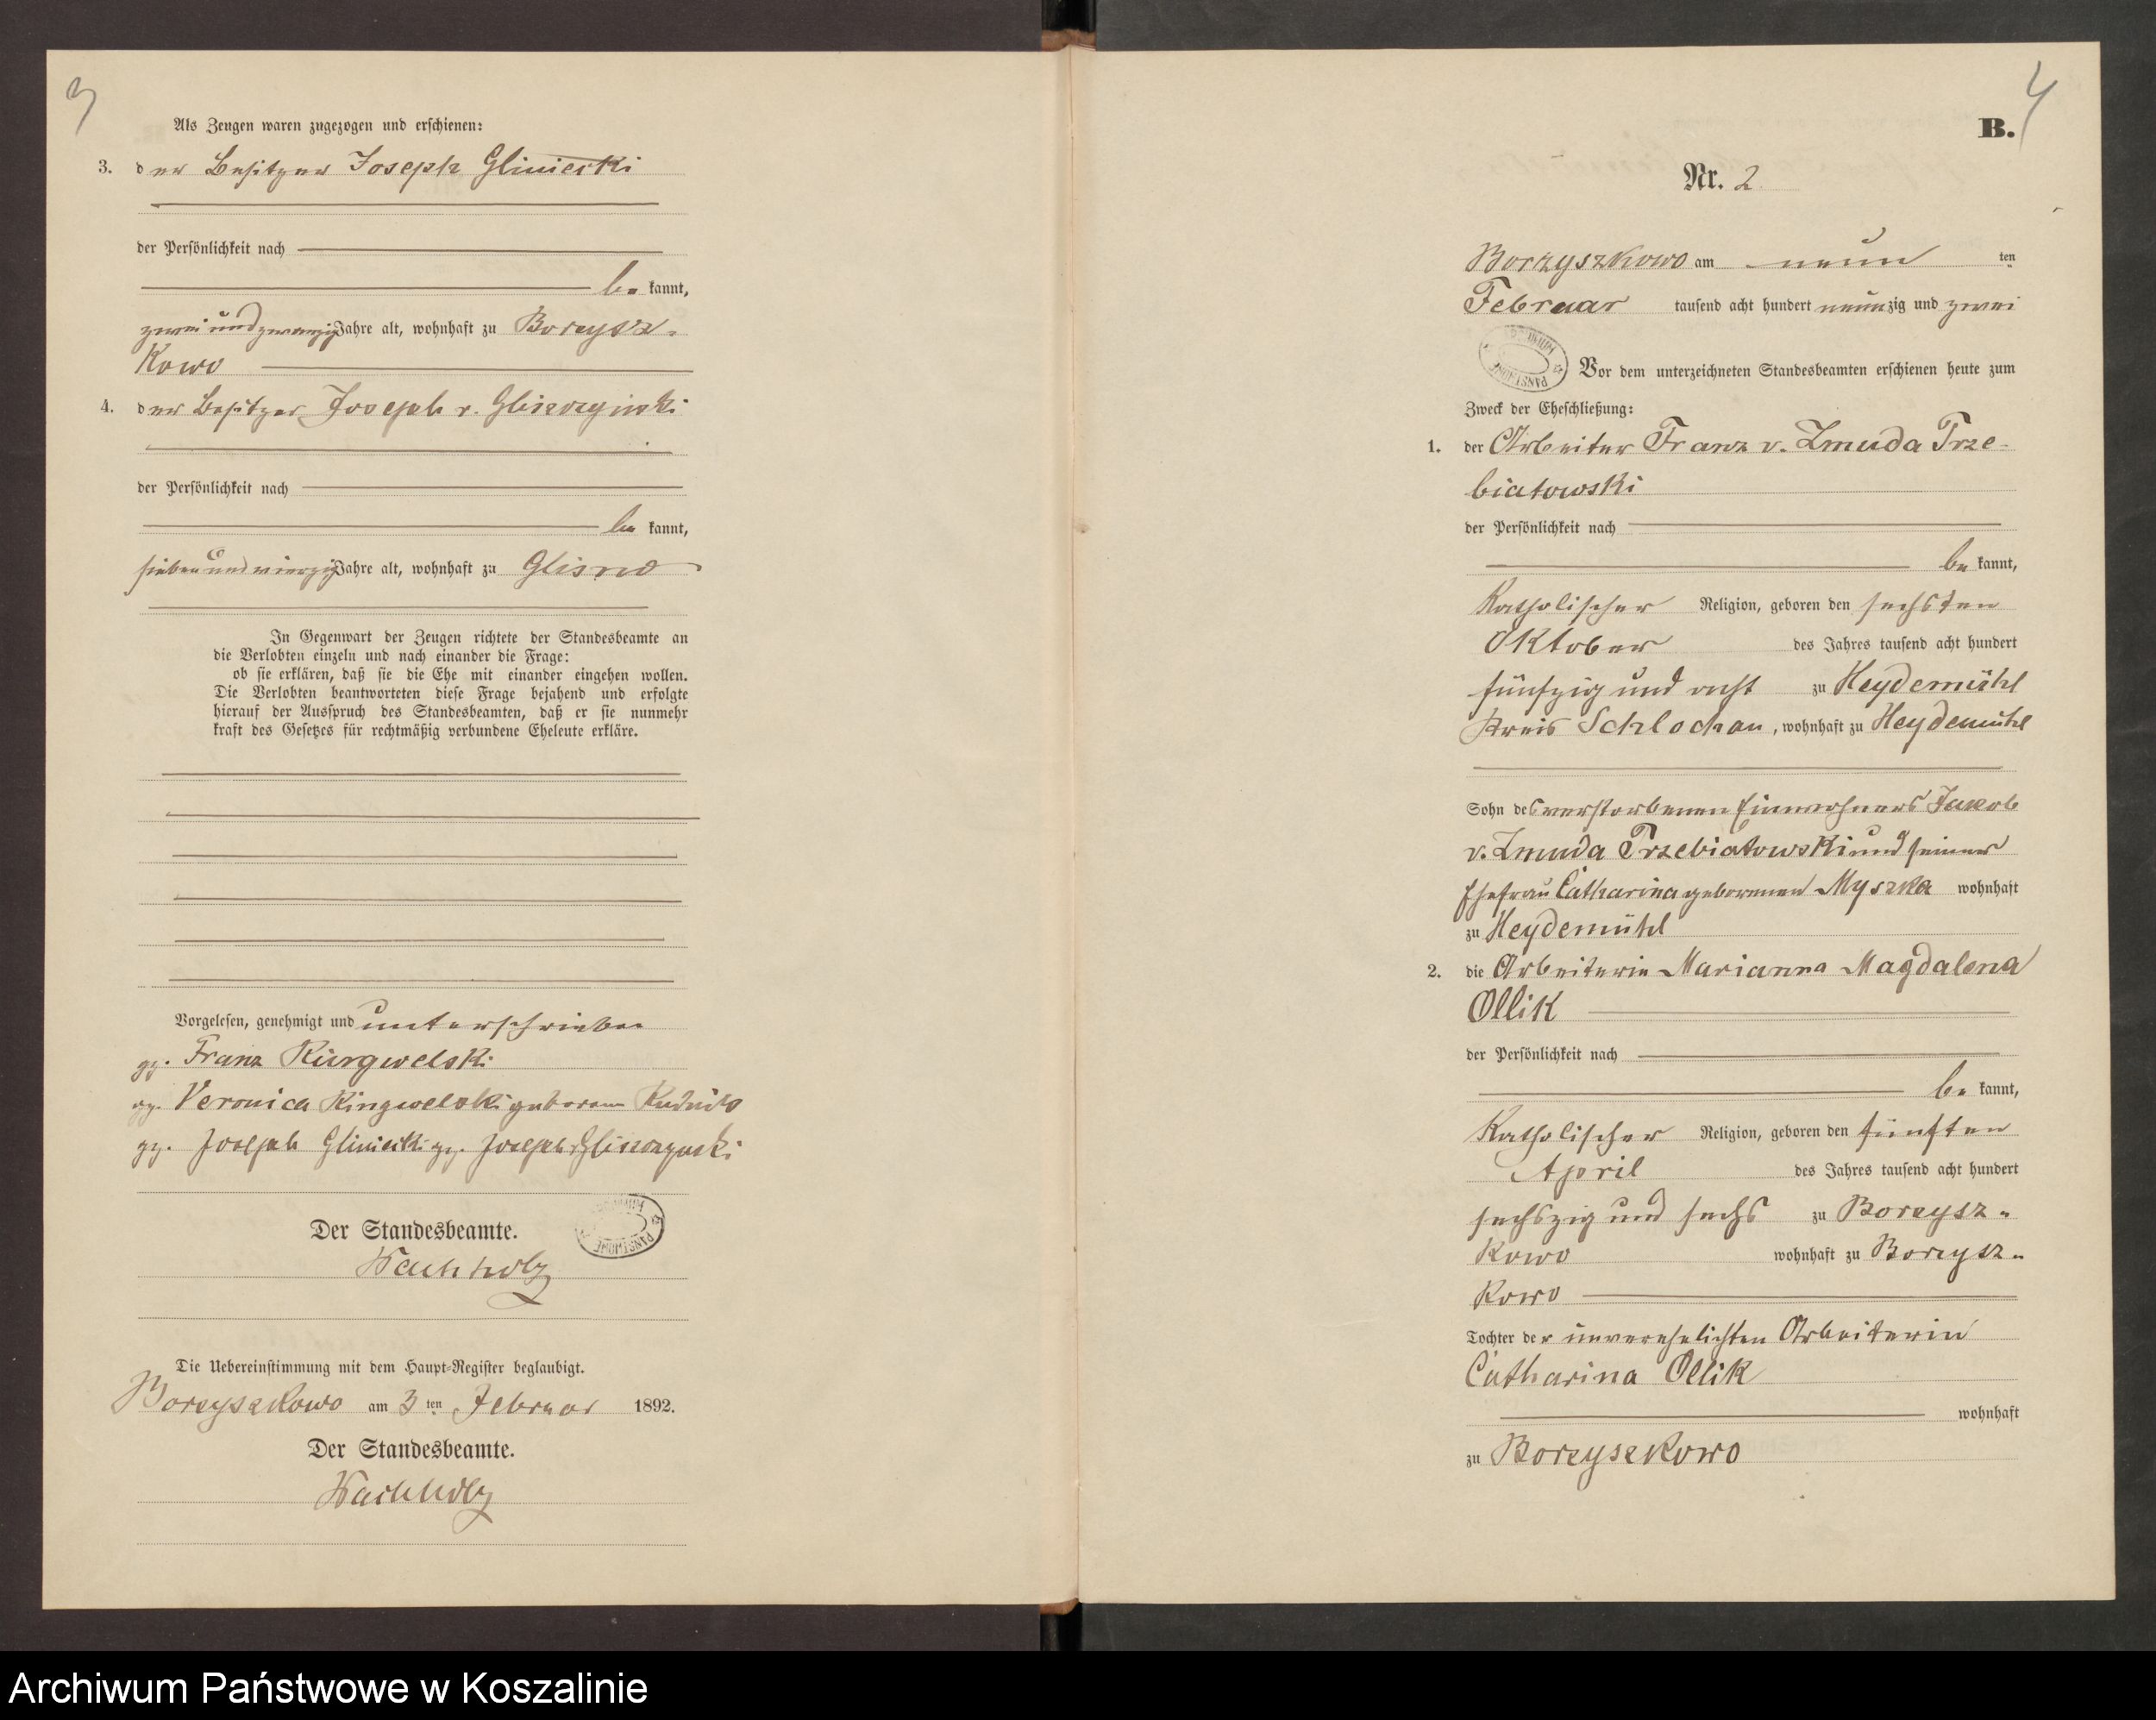 3
Als Zeugen waren zugezogen und erschienen:
3. der Besitzer Joseph Gliniecki
der Persönlichkeit nach
be kannt,
zwei und zwanzig Jahre alt, wohnhaft zu Borzysz-
kowo
4. der Besitzer Joseph v. Gliszczynski
der Persönlichkeit nach
be kannt,
sieben und vierzig Jahre alt, wohnhaft zu Glisno
In Gegenwart der Zeugen richtete der Standesbeamte an
die Verlobten einzeln und nach einander die Frage:
ob sie erklären, daß sie die Ehe mit einander eingehen wollen.
Die Verlobten beantworteten diese Frage bejahend und erfolgte
hierauf der Ausspruch des Standesbeamten, daß er sie nunmehr
kraft des Gesetzes für rechtmäßig verbundene Eheleute erkläre.
Vorgelesen, genehmigt und unterschrieben
gz. Franz Ringwelski
gz. Veronica Ringwelski geborene
gz. Joseph Gliniecki gz. Joseph v Gliszczynski
Der Standesbeamte.
Wachholz
Die Uebereinstimmung mit dem Haupt-Register beglaubigt.
Borzyszkowo am 3 ten Februar 1892.
Der Standesbeamte.
Wachholz
4
B.
Nr. 2
Borzyszkowo am neun ten
Februar tausend acht hundert neunzig und zwei
Vor dem unterzeichneten Standesbeamten erschienen heute zum
Zweck der Eheschließung:
1. der Arbeiter Franz v. Zmuda Trze-
biatowski
der Persönlichkeit nach
be kannt,
Katholischer Religion, geboren den sechsten
Oktober des Jahres tausend acht hundert
fünfzig und acht zu Heydemühl
Kreis Schlochau, wohnhaft zu Heydemühl
Sohn des verstorbenen Einwohners Jakob
v. Zmuda Trzebiatowski und seiner
Ehefrau Catharina geborenen Myszka wohnhaft
zu Heydemühl
2. die Arbeiterin Marianna Magdalena
Ollik
der Persönlichkeit nach
be kannt,
Katholischer Religion, geboren den fünften
April des Jahres tausend acht hundert
sechszig und sechs zu Borzysz-
kowo wohnhaft zu Borzysz-
kowo
Tochter der unverehelichten Arbeiterin
Catharina Ollik
wohnhaft
zu Borzyszkowo
Archiwum Państwowe w Koszalinie